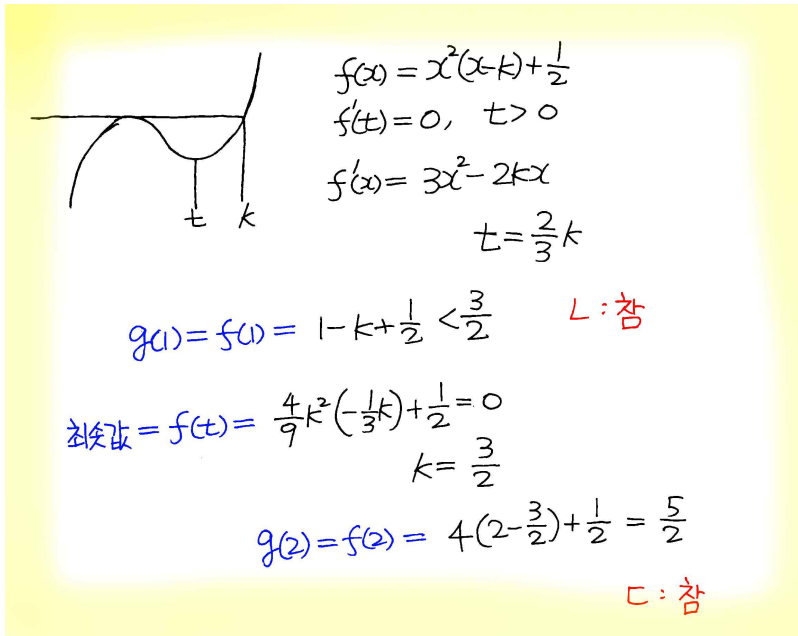 f(x) = x²(x-k) + 1/2
f'(t) = 0, t > 0
f'(x) = 3x² - 2kx
t k
t = 2/3 k
g(1) = f(1) = 1 - k + 1/2 < 3/2 ㄴ : 참
최솟값 = f(t) = 4/9 k² (-1/3 k) + 1/2 = 0
k = 3/2
g(2) = f(2) = 4(2 - 3/2) + 1/2 = 5/2
ㄷ : 참